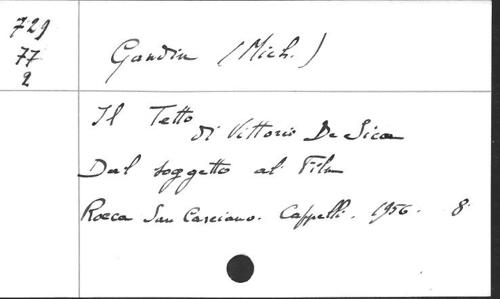 729
77
2
Gandin (Mich.)
Il Tetto
di Vittorio De Sica
Dal soggetto al Film
Rocca San Casciano. Cappelli. 1956. 8°